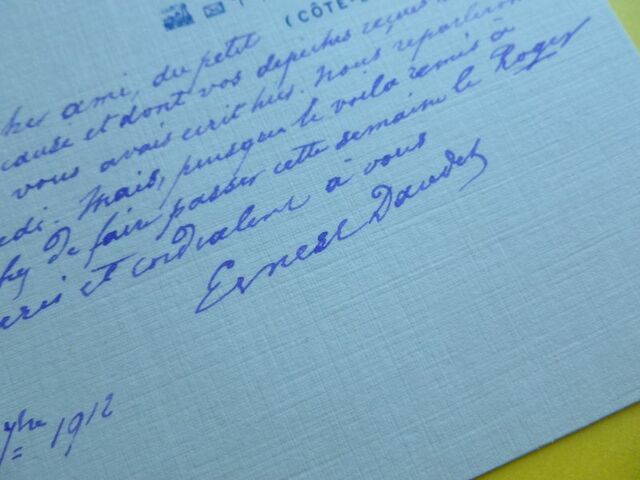 (CÔTE-
ami, du petit
cause et dont vos dépêches reçues
vous avais écrit hier. Nous reparlerons
Mais, puisque le voilà remis à
de faire passer cette semaine le Roger
et cordialent à vous
Ernest Daudet
1912